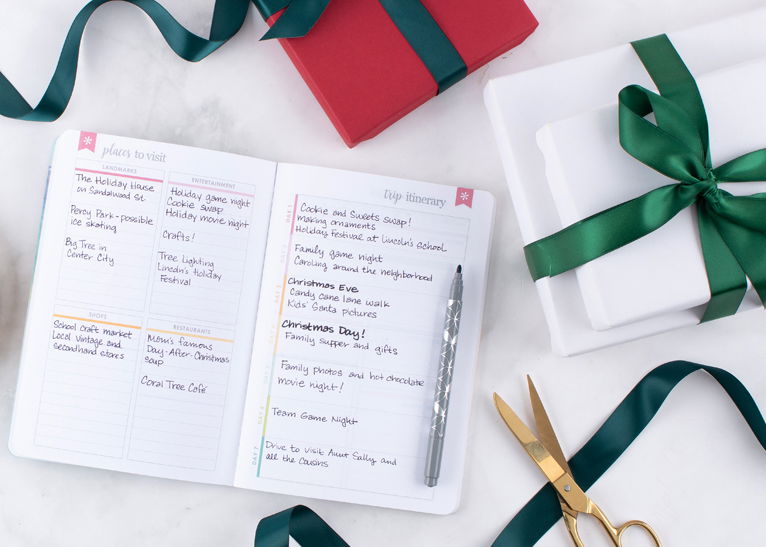 places to visit
LANDMARKS
The Holiday House
on Sandalwood St.
Percy Park - possible
ice skating
Big Tree in
Center City
ENTERTAINMENT
Holiday game night
Cookie swap
Holiday movie night
Crafts!
Tree Lighting
Lincoln's Holiday
Festival
SHOPS
School craft market
Local vintage and
secondhand stores
RESTAURANTS
Mom's famous
Day-After-Christmas
soup
Coral Tree Café
trip itinerary
DAY 1
Cookie and Sweets swap!
making ornaments
Holiday Festival at Lincoln's School
Family game night
Caroling around the neighborhood
DAY 3
Christmas Eve
Candy cane lane walk
Kids' Santa pictures
Christmas Day!
Family supper and gifts
Family photos and hot chocolate
movie night!
DAY 6
Team Game Night
DAY 7
Drive to visit Aunt Sally and
all the cousins